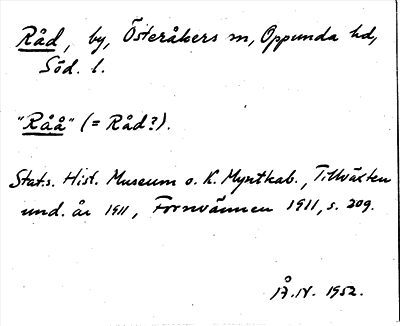 Råd, by, Österåkers sn, Oppunda hd,
Söd. l.
"Råå" (= Råd?).
Stat:s. Hist. Museum o. K. Myntkab., Tillväxten
und. år 1911, Fornvännen 1911, s. 209.
Å.N. 1952.